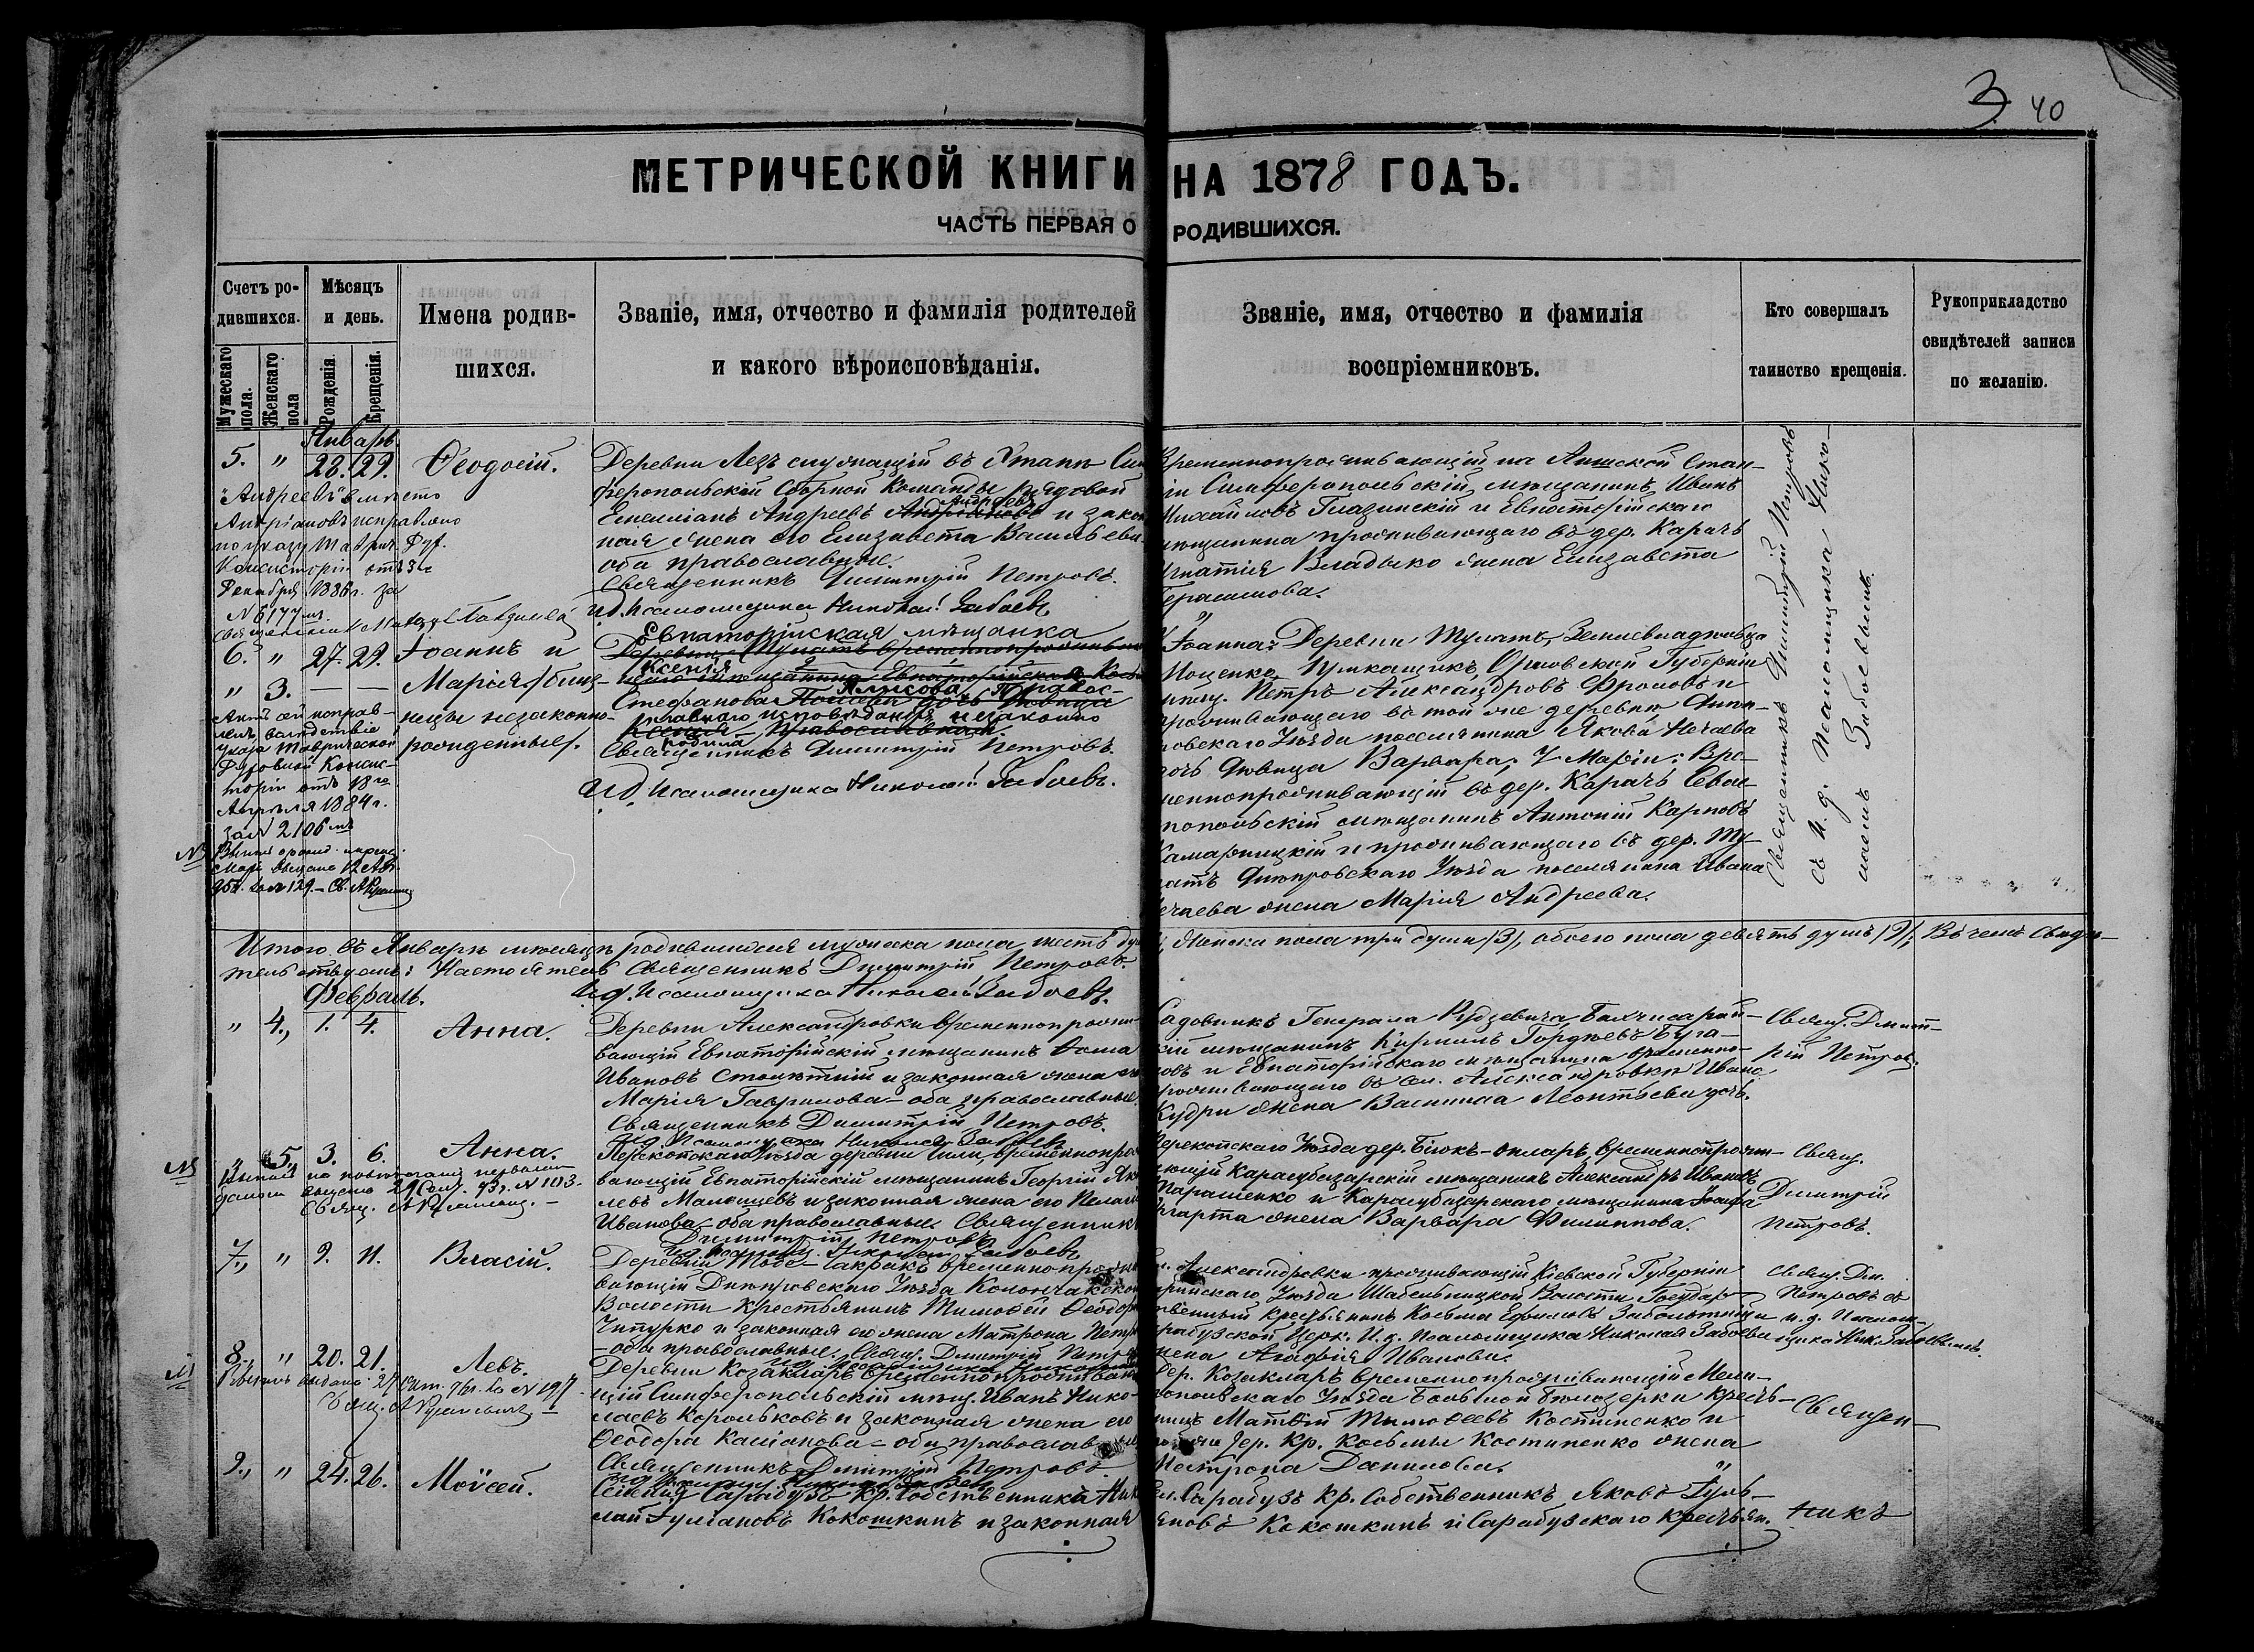 3 40
МЕТРИЧЕСКОЙ КНИГИ НА 1878 ГОДЪ.
ЧАСТЬ ПЕРВАЯ О РОДИВШИХСЯ.
Счетъ ро-
дившихся.
Мужескаго пола.
Женскаго пола
Мѣсяцъ
и день.
Рожденія.
Крещенія.
Имена родив-
шихся.
Званіе, имя, отчество и фамилія родителей
и какого вѣроисповѣданія.
Званіе, имя, отчество и фамилія
воспріемниковъ.
Кто совершалъ
таинство крещенія.
Рукоприкладство
свидѣтелей записи
по желанію.
Январь.
5. " 28. 29. Ѳеодосій.
"Андреевъ" вмѣсто
Андріановъ исправлено
по указу Таврич. Дух.
Консисторіи отъ 31
Декабря 1886 г. за
№ 6177
Деревни Аезъ служащій въ Этапѣ Сим
феропольской Сборной Команды рядовой
Андреевъ
Емеліанъ Андреевъ Андріановъ и закон
ная жена его Елизавета Васильева
оба православные.
Священникъ Димитрій Петровъ.
И.д. псаломщика Николай Забоевъ
Временнопроживающій на Аишской Стан-
ціи Симферопольскій мѣщанинъ Иванъ
Михайловъ Глазинскій и Евпаторійскаго
мѣщанина проживающаго въ дер. Карачъ
Игнатія Владыко жена Елизавета
Герасимова.
Священникъ Димитрій Петровъ
съ и. д. псаломщика Нико-
лаемъ Забоевымъ.
6. " 27. 29. Іоаннъ и
" 3. — — Марія /близ-
нецы незаконно-
рожденные/.
вслѣдствіе
Указа Таврической
Духовной Консис-
торіи отъ 18го
Апрѣля 1884 г.
за № 2106
Евпаторійская мѣщанка
Ксенія
Стефанова Алисова, Правос-
лавнаго исповѣданія незаконно
родила
Священникъ Димитрій Петровъ
И.д. Псаломщика Николай Забоевъ.
У Іоанна: Деревни Тулатъ, Землевладѣльца
Мощенко, Прикащикъ, Орловской Губерніи
мѣщ. Петръ Александровъ Фроловъ и
проживающаго въ той же деревнѣ Днѣп-
ровскаго Уѣзда поселянина Якова Нечаева
дочь дѣвица Варвара; У Маріи: Вре-
меннопроживающій въ дер. Карачъ Севас-
топольскій мѣщанинъ Антоній Карповъ
Камарницкій и проживающаго въ дер. Ту-
латъ Днѣпровскаго Уѣзда поселянина Ивана
Нечаева жена Марія Андреева.
Итого въ Январѣ мѣсяцѣ родившихся мужеска пола шесть душ
, женска пола три души /3/, обоего пола девять душъ /9/; Въ чемъ Свидѣ-
тельствуемъ: Настоятель Священникъ Димитрій Петровъ.
И.д. Псаломщика Николай Забоевъ.
Февраль.
" 4., 1. 4. Анна.
Деревни Александровки временнопрожи-
вающій Евпаторійскій мѣщанинъ Ѳома
Ивановъ Столѣтній и законная жена его
Марія Гаврилова — оба православные.
Священникъ Димитрій Петровъ.
И.д. Псаломщика Николай Забоевъ
Садовникъ Генерала Рудзевича Бахчисарай-
скій мѣщанинъ Кириллъ Гордѣевъ Буга-
ковъ и Евпаторійскаго мѣщанина временно-
проживающаго въ сел. Александровкѣ Ивана
Кудри жена Василиса Леонтьева дочь.
Свящ. Димит-
рій Петровъ.
№ " 5. 3. 6. Анна.
Перекопскаго Уѣзда деревни временнопрожи
вающій Евпаторійскій мѣщанинъ Георгій Яков
левъ Малышевъ и законная жена его Пелагія
Иванова — оба православные. Священникъ
Димитрій Петровъ
И.д. псаломщ. Николай Забоевъ
Перекопскаго Уѣзда дер. Біюкъ-Онларъ, временнопрожи-
вающій Карасубазарскій мѣщанинъ Александръ Ивановъ
Парашенко и Карасубазарскаго мѣщанина Іосифа
жена Варвара Филиппова.
Свящ.
Димитрій
Петровъ.
7., " 9. 11. Власій.
Деревни Тобе-Чакракъ временнопрожи
вающій Днѣпровскаго Уѣзда Каланчакской
Волости Крестьянинъ Тимоѳей Ѳеодоровъ
Чипурко и законная его жена Матрона Петр
— оба православные. Свящ. Димитрій Петровъ
Александровки проживающій Кіевской Губерніи
Уѣзда Шабельницкой Волости Государ-
ственный Крестьянинъ Косьма Ефимовъ Заболотній и
Сарабузской Церк. И.д. Псаломщика Николая Забоева
жена Агафія Иванова.
Свящ. Дм.
Петровъ съ
и. д. Псалом-
щика Ник. Забоевымъ.
8., " 20. 21. Левъ.
Деревни Козакларъ временнопроживаю
щій Симферопольскій мѣщ. Иванъ Нико-
лаевъ Корольковъ и законная жена его
Ѳеодора Касіанова — оба православные
Священникъ Димитрій Петровъ
Дер. Козакларъ временнопроживающій Мели-
топольскаго Уѣзда Большой Бѣлозерки крестья-
нинъ Матвій Тимоѳеевъ Костиненко и
дер. Кр. Косьмы Костиненко жена
Матрона Данилова.
Священ-
9., " 24. 26. Моѵсей.
Селенія Сарабузъ Кр. Собственникъ Ник
лай Гуліановъ Кокошкинъ и законная
Сел. Сарабузъ Кр. Собственникъ Яковъ Гуль-
яновъ Кокошкинъ и Сарабузскаго крестьян.
никъ